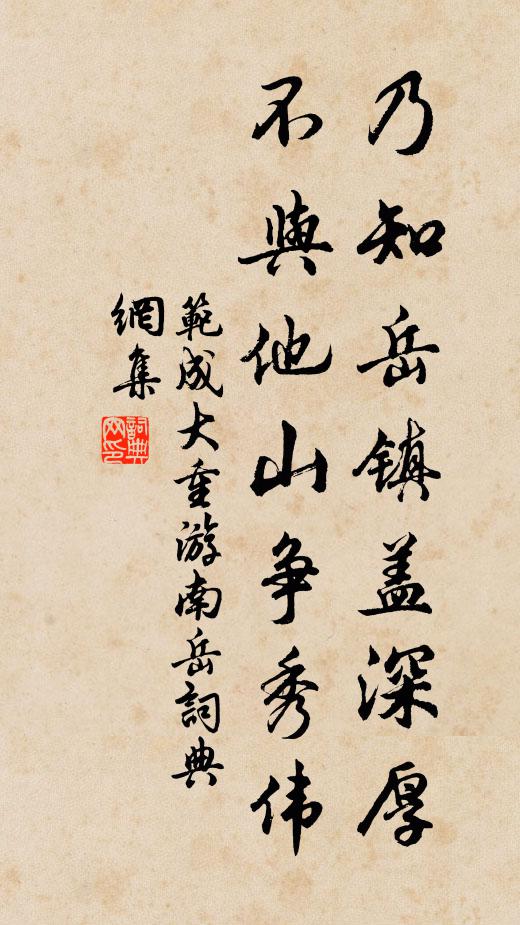 乃知岳镇盖深厚
不與他山争秀伟
範成大重游南岳詞典
網集
詞典网印